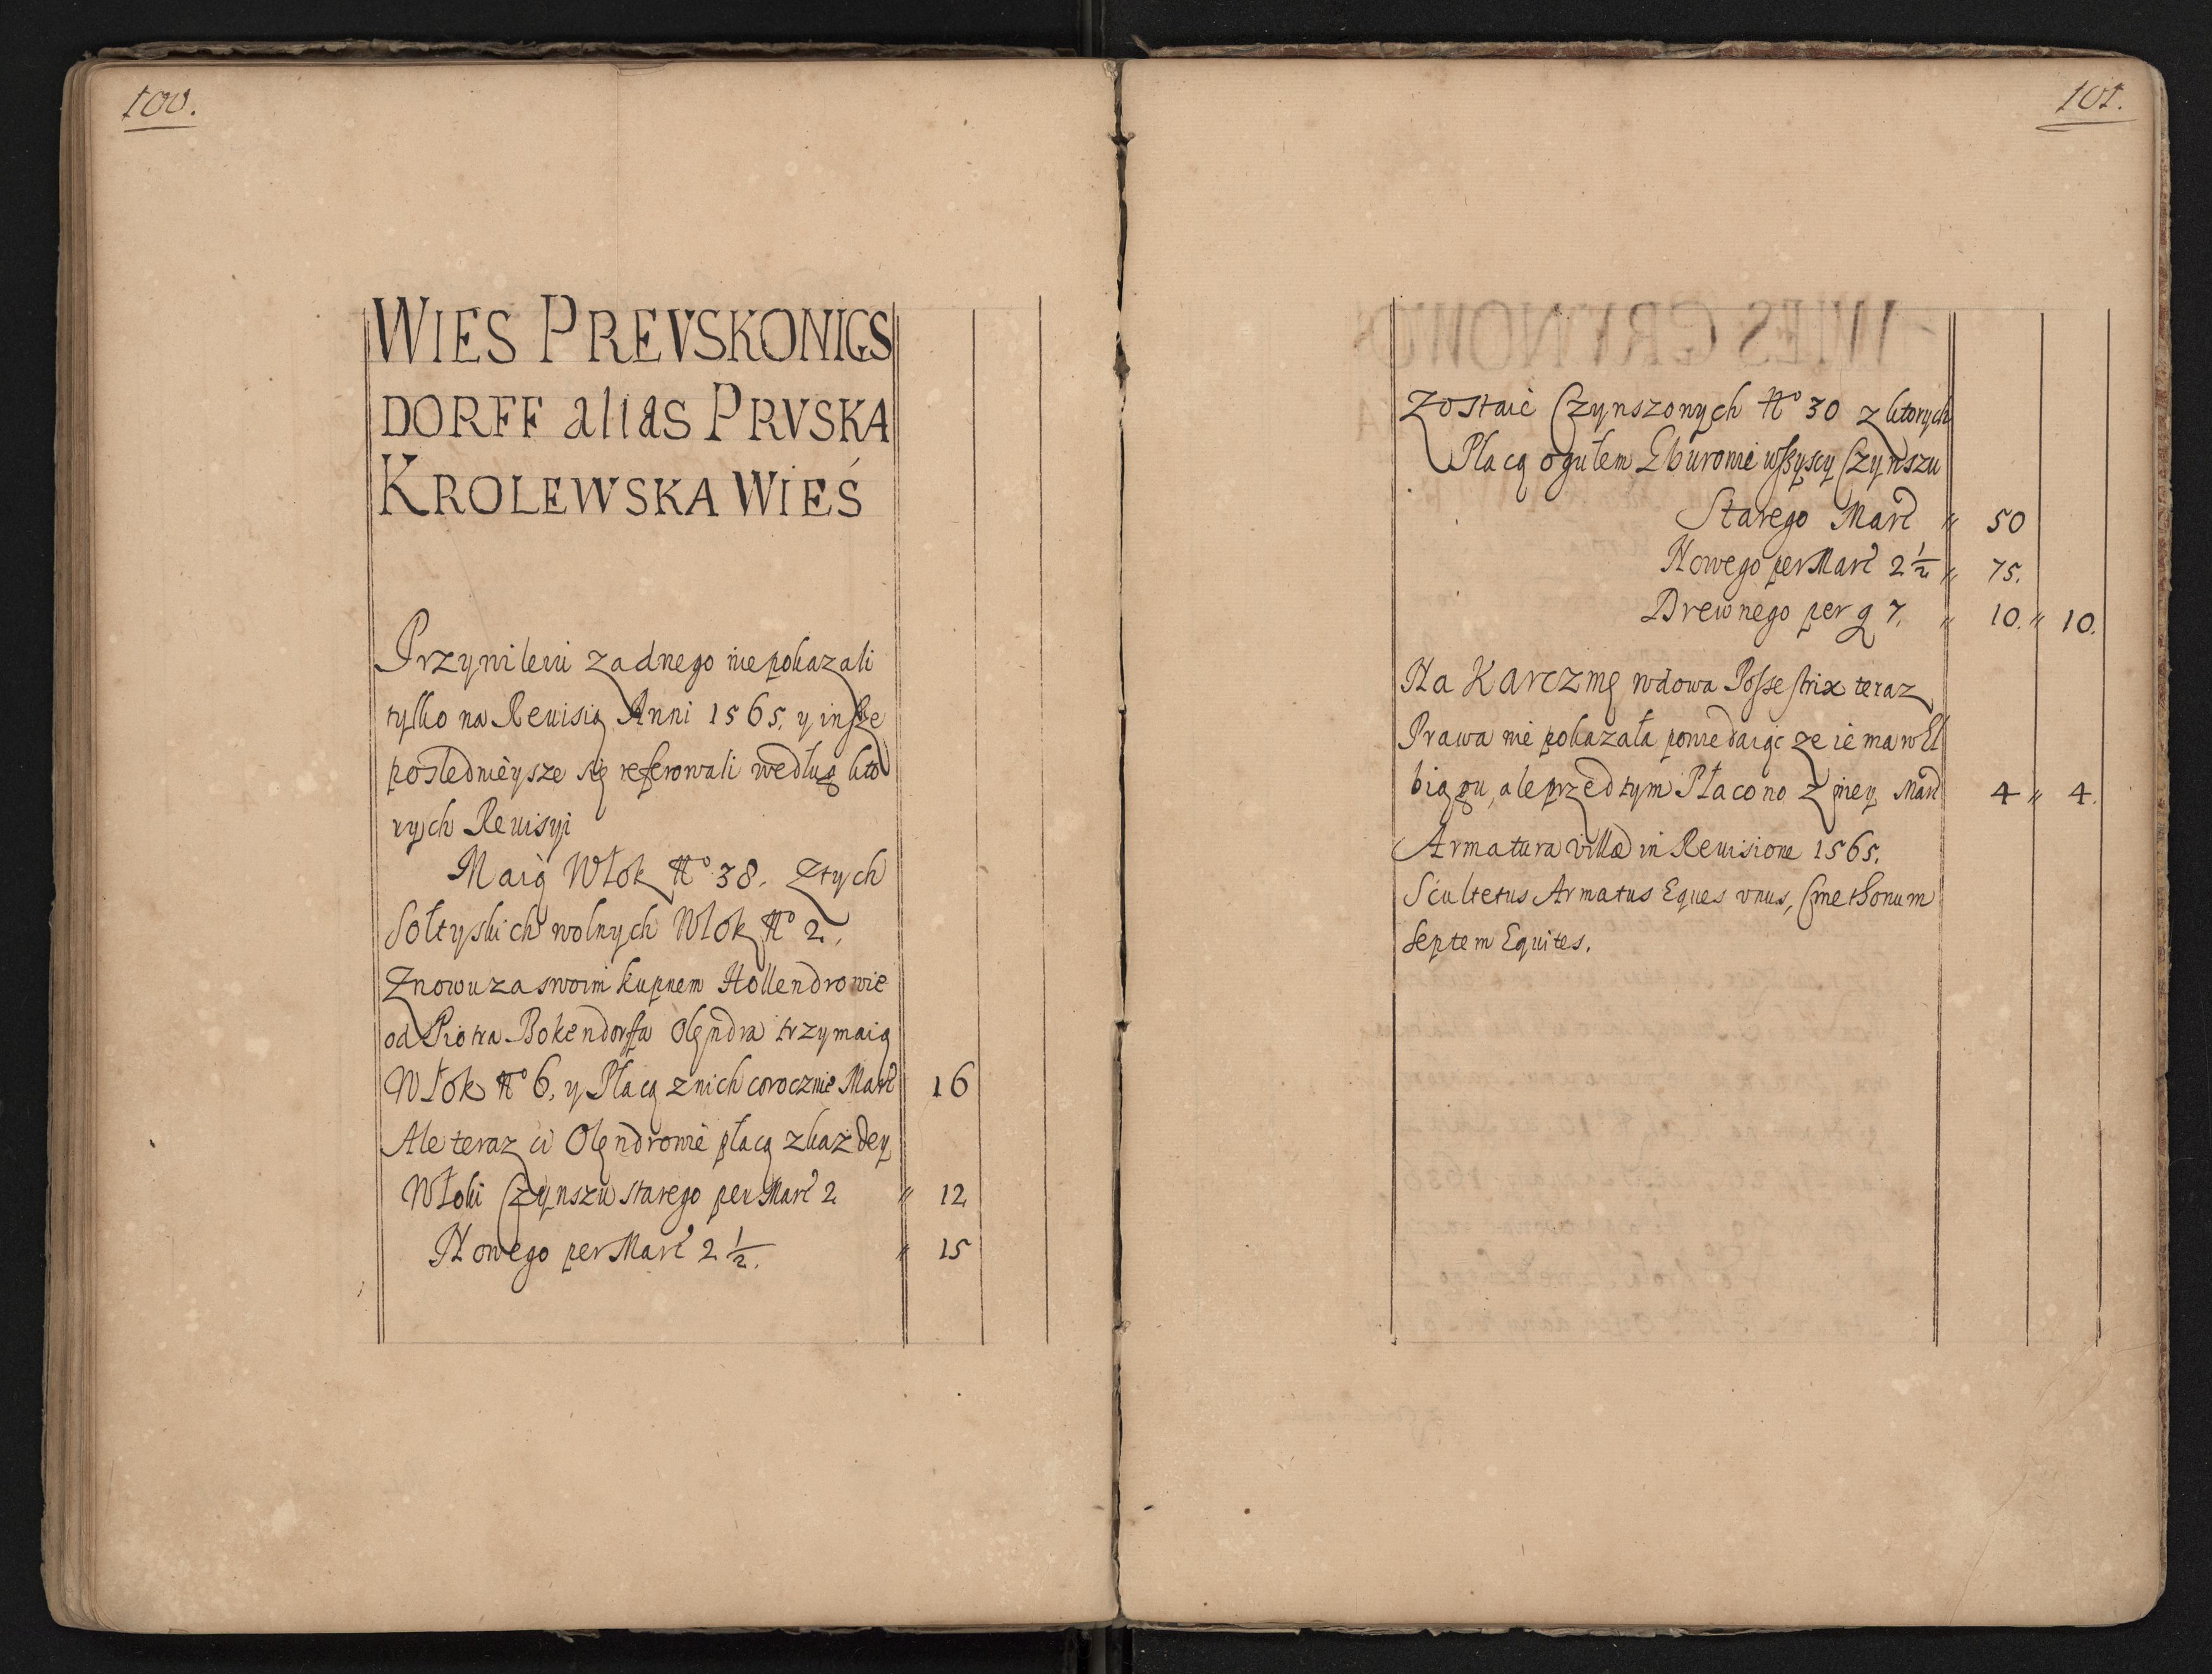 100.
WIES PREVSKONIGS
DORFF alias PRVSKA
KROLEWSKA WIEŚ
Przywileiu zadnego nie pokazali
tylko na Reuisią Anni 1565. y insze
poslednieysze się referowali według kto
rych Reuisyi
Maią Włok No 38. Z tych
Sołtyskich wolnych Włok No 2.
Znowu za swoim kupnem Hollendrowie
od Piotra Bokendorffa Olędra trzymaią
Włok No 6. y Płacą z nich corocznie Marc 16
Ale teraz ci Olędrowie płacą z kazdey
Włoki Czynszu starego per Marc 2 〃 12
Nowego per Marc 2 1/2. 〃 15
101.
Zostaie Czynszonych No 30 z ktorych
Płacą ogułem Gburowie wszyscy Czynszu
Starego Marc 〃 50
Nowego per Marc 2 1/2 〃 75.
Drewnego per g 7. 〃 10. 〃 10.
Na Karczmę wdowa Possestrix teraz
Prawa nie pokazała powiedaiąc ze ie ma w El
biągu, ale przed tym Płacono z niey Marc 4 〃 4.
Armatura villae in Reuisione 1565.
Scultetus Armatus Eques vnus, Cmethonum
Septem Equites.